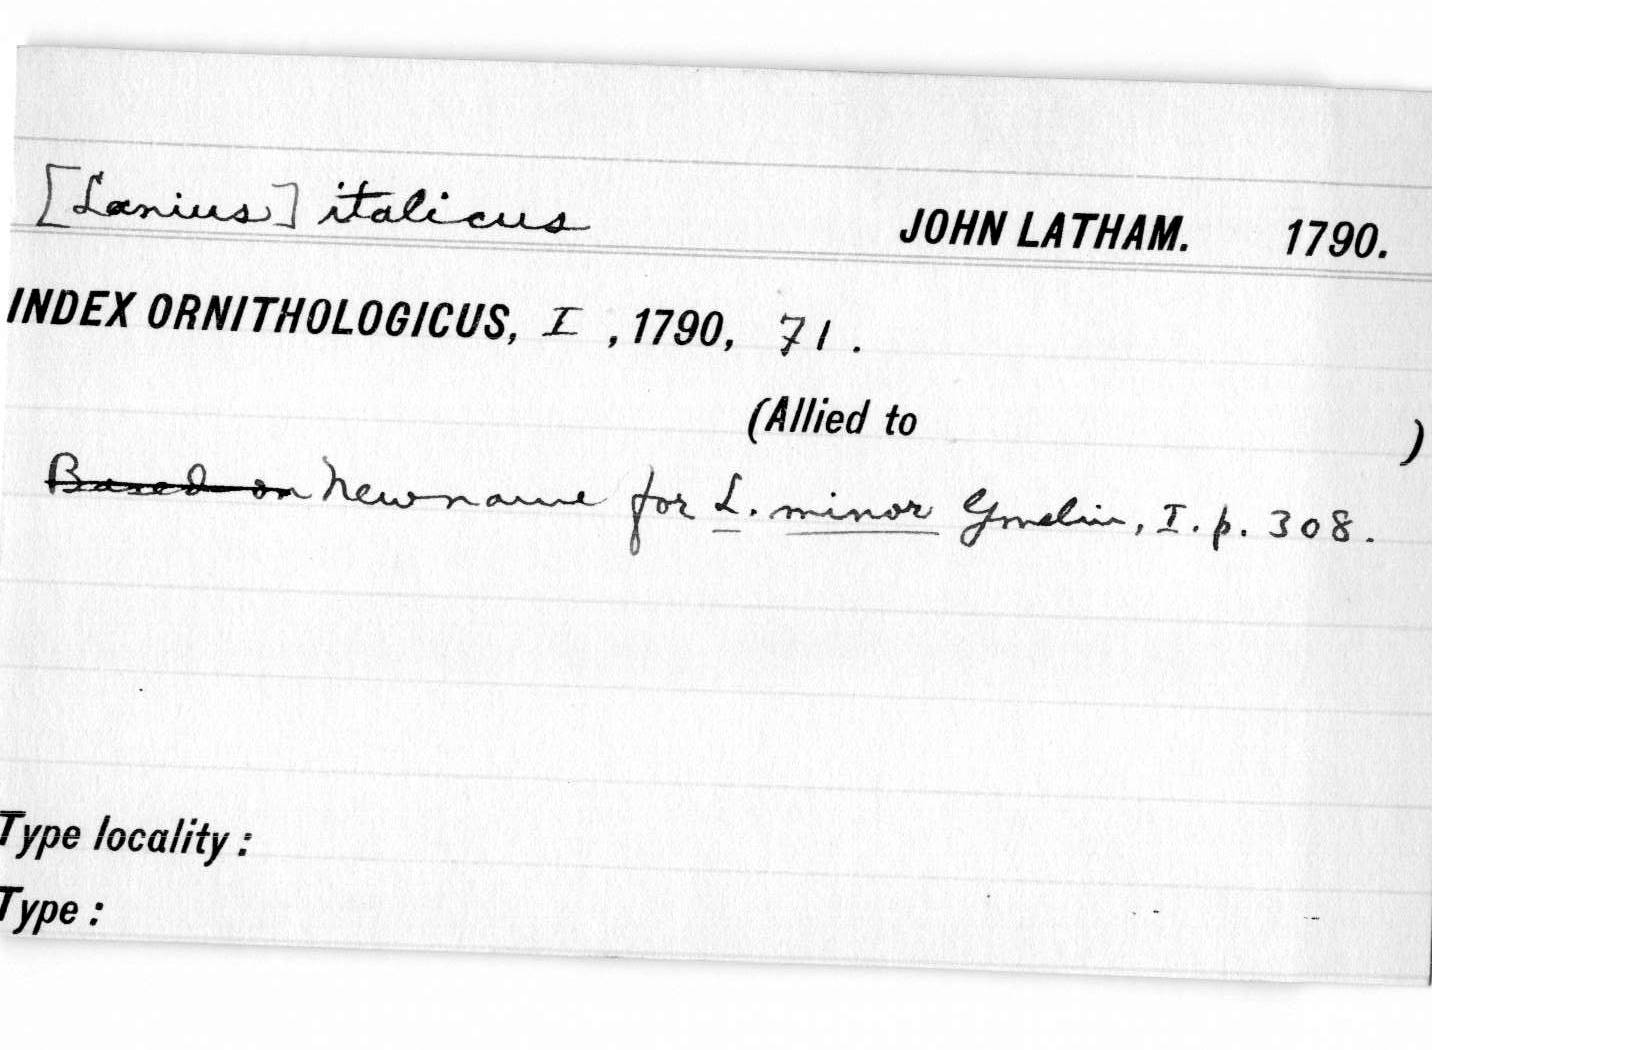 [Lanius] italicus JOHN LATHAM. 1790.
INDEX ORNITHOLOGICUS, I , 1790, 71 .
(Allied to )
Based on New name for L. minor Gmelin, I. p. 308.
Type locality :
Type :